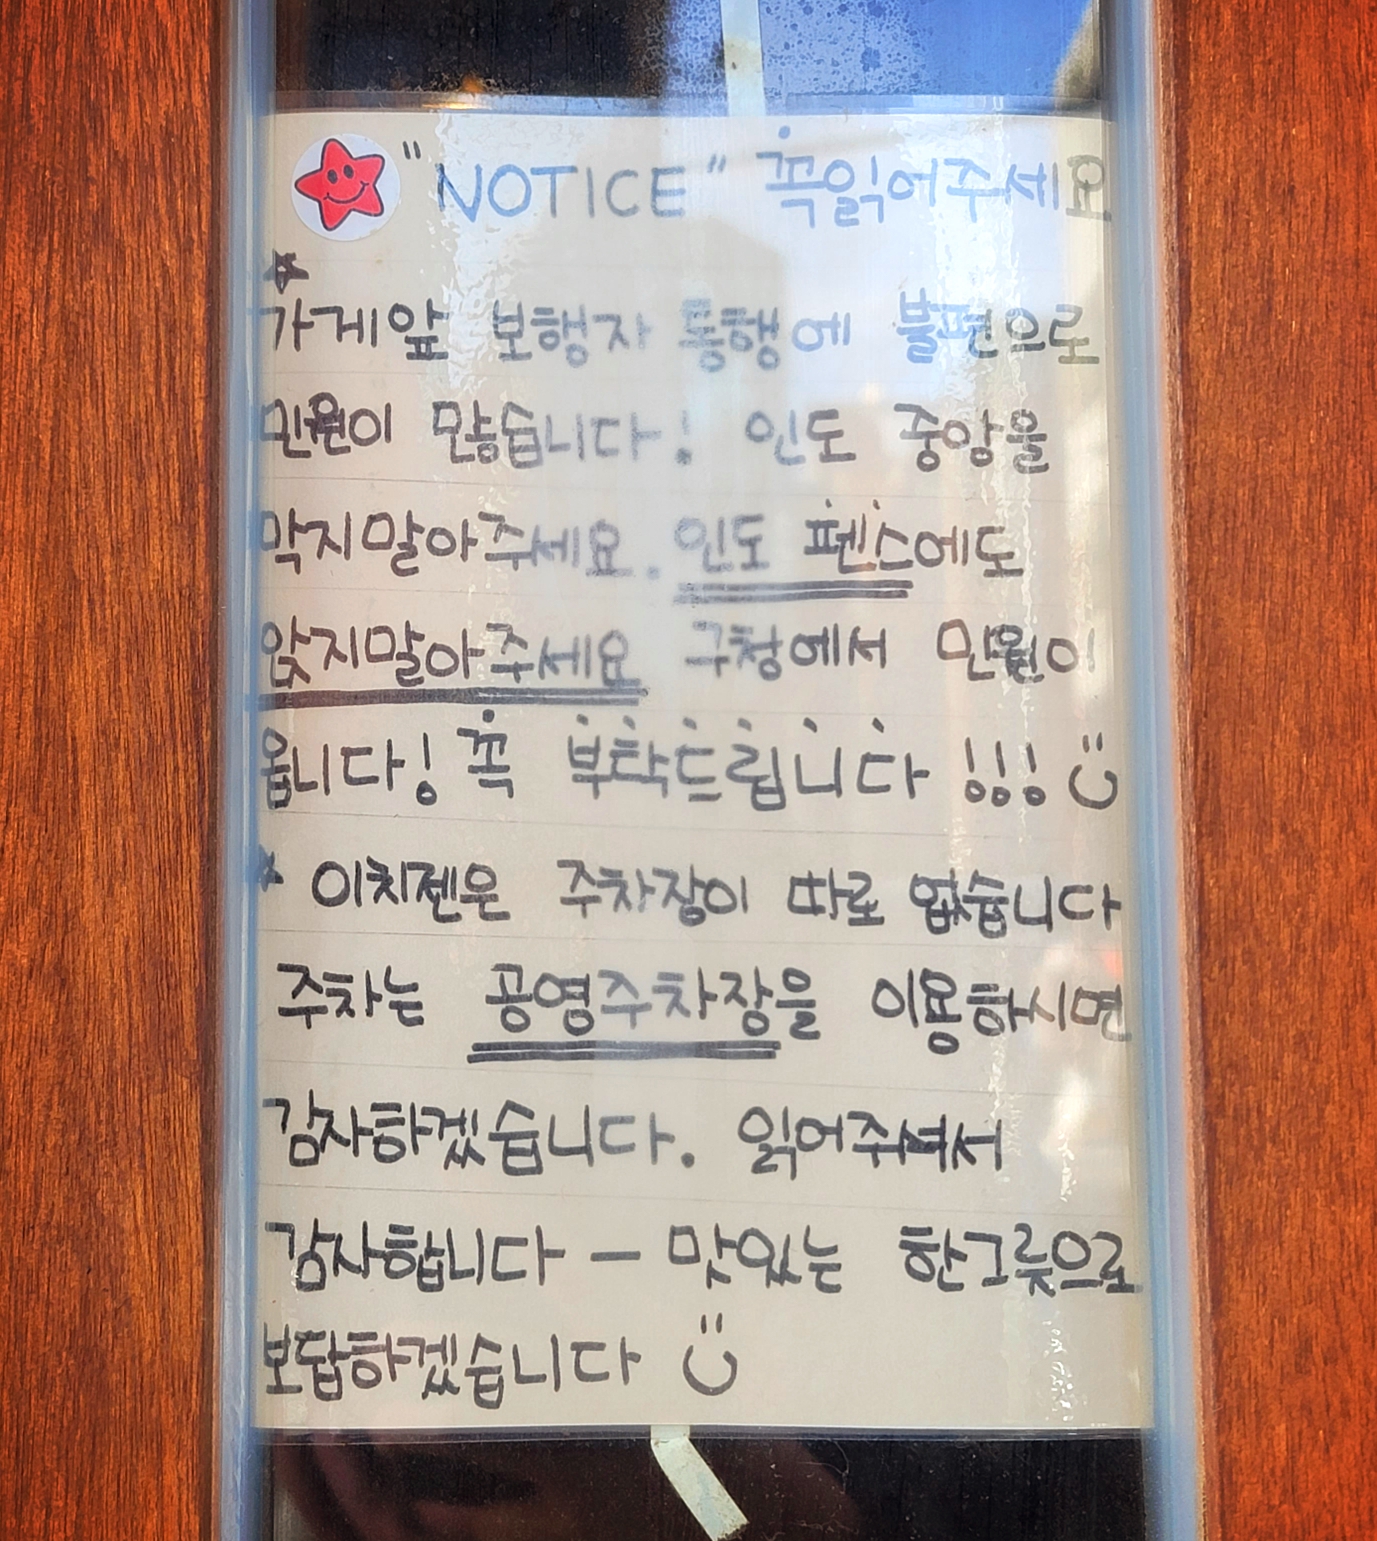 "NOTICE" 꼭읽어주세요
가게앞 보행자 통행에 불편으로
민원이 많습니다! 인도 중앙을
막지말아주세요. 인도 펜스에도
앉지말아주세요 구청에서 민원이
옵니다! 꼭 부탁드립니다 !!!
이치젠은 주차장이 따로 없습니다
주차는 공영주차장을 이용하시면
감사하겠습니다. 읽어주셔서
감사합니다 - 맛있는 한그릇으로
보답하겠습니다